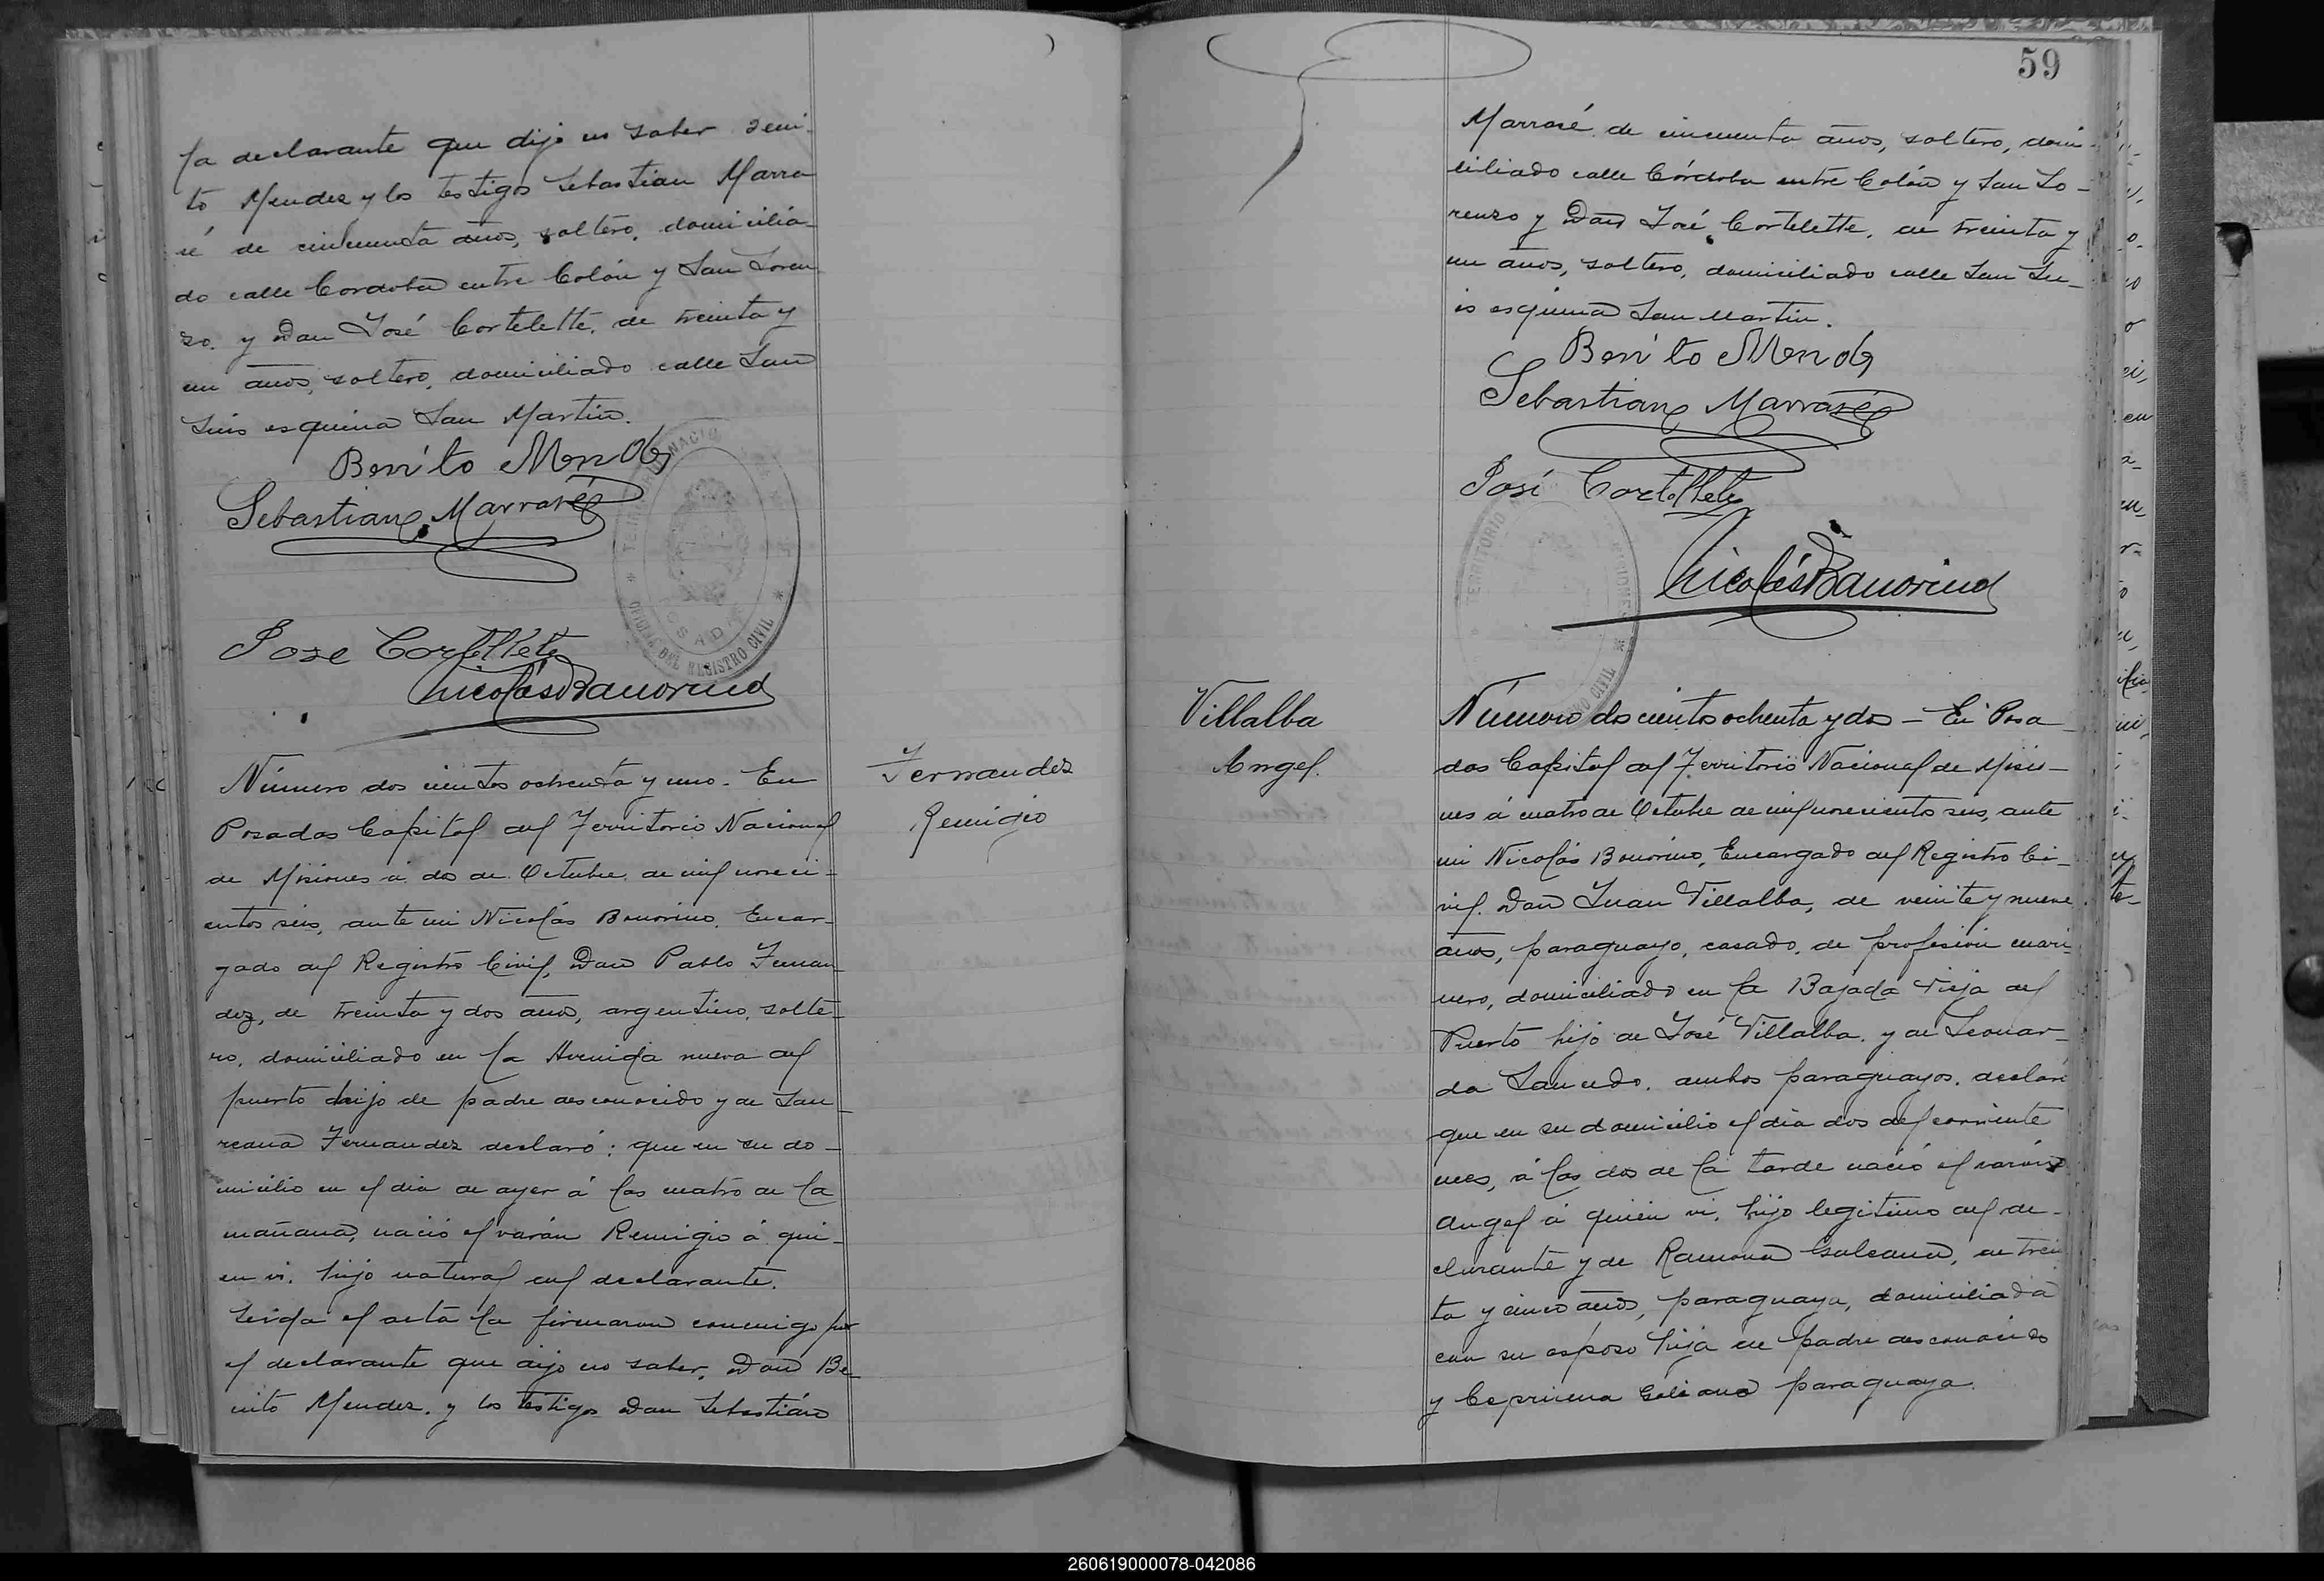 la declarante que dijo no saber Beni-
to Mendez y los testigos Sebastian Marra
sé de cincuenta años, soltero, domicilia-
do calle Cordoba entre Colón y San Loren
zo. y Don José Cortelette, de treinta y
un años, soltero, domiciliado calle San
Luis esquina San Martin.
Benito Mendez
Sebastian Marrasé
TERRITORIO NACIO
OFICINA DEL REGISTRO CIVIL
POSADAS
Jose Cortellete
Nicolás Bauorino
Número dos cientos ochenta y uno. En
Posadas Capital del Territorio Nacional
de Misiones á dos de Octubre de mil noveci-
entos seis, ante mi Nicolás Bouorino, Encar-
gado del Registro Civil, Don Pablo Fernan-
dez, de treinta y dos años, argentino, solte-
ro, domiciliado en la Avenida nueva del
puerto hijo de padre desconocido y de Lau-
reana Fernandez declaró: que en su do-
micilio en el dia de ayer á las cuatro de la
mañana, nació el varón Remigio á qui-
en vi, hijo natural del declarante.
Leida el acta la firmaron conmigo por
el declarante que dijo no saber, Don Be-
nito Mendez. y los testigos Don Sebastián
Fernandez
Remigio
59
Marrasé de cincuenta años, soltero, domi-
ciliado calle Córdoba entre Colón y San Lo-
renzo y Don José Cortelette, de treinta y
un años, soltero, domiciliado calle San Lu-
is esquina San Martin.
Benito Mendez
Sebastian Marrasé
José Cortellete
TERRITORIO
MISIONES
CIVIL
Nicolás Bauorino
Villalba
Angel.
Número dos cientos ochenta y dos - En Posa-
das Capital del Territorio Nacional de Misio-
nes á cuatro de Octubre de mil novecientos seis, ante
mi Nicolás Bouorino, Encargado del Registro Ci-
vil. Don Juan Villalba, de veinte y nueve
años, paraguayo, casado, de profesión mari-
nero, domiciliado en la Bajada Vieja del
Puerto hijo de José Villalba, y de Leonar-
da Saucedo, ambos paraguayos, declaró
que en su domicilio el dia dos del corriente
mes, á las dos de la tarde nació el varón
Angel á quien vi, hijo legitimo del de-
clarante y de Ramona Galeana, de trein
ta y cinco años, paraguaya, domiciliada
con su esposo hija de padre desconocido
y Ceprinena Galeana paraguaya.
260619000078-042086